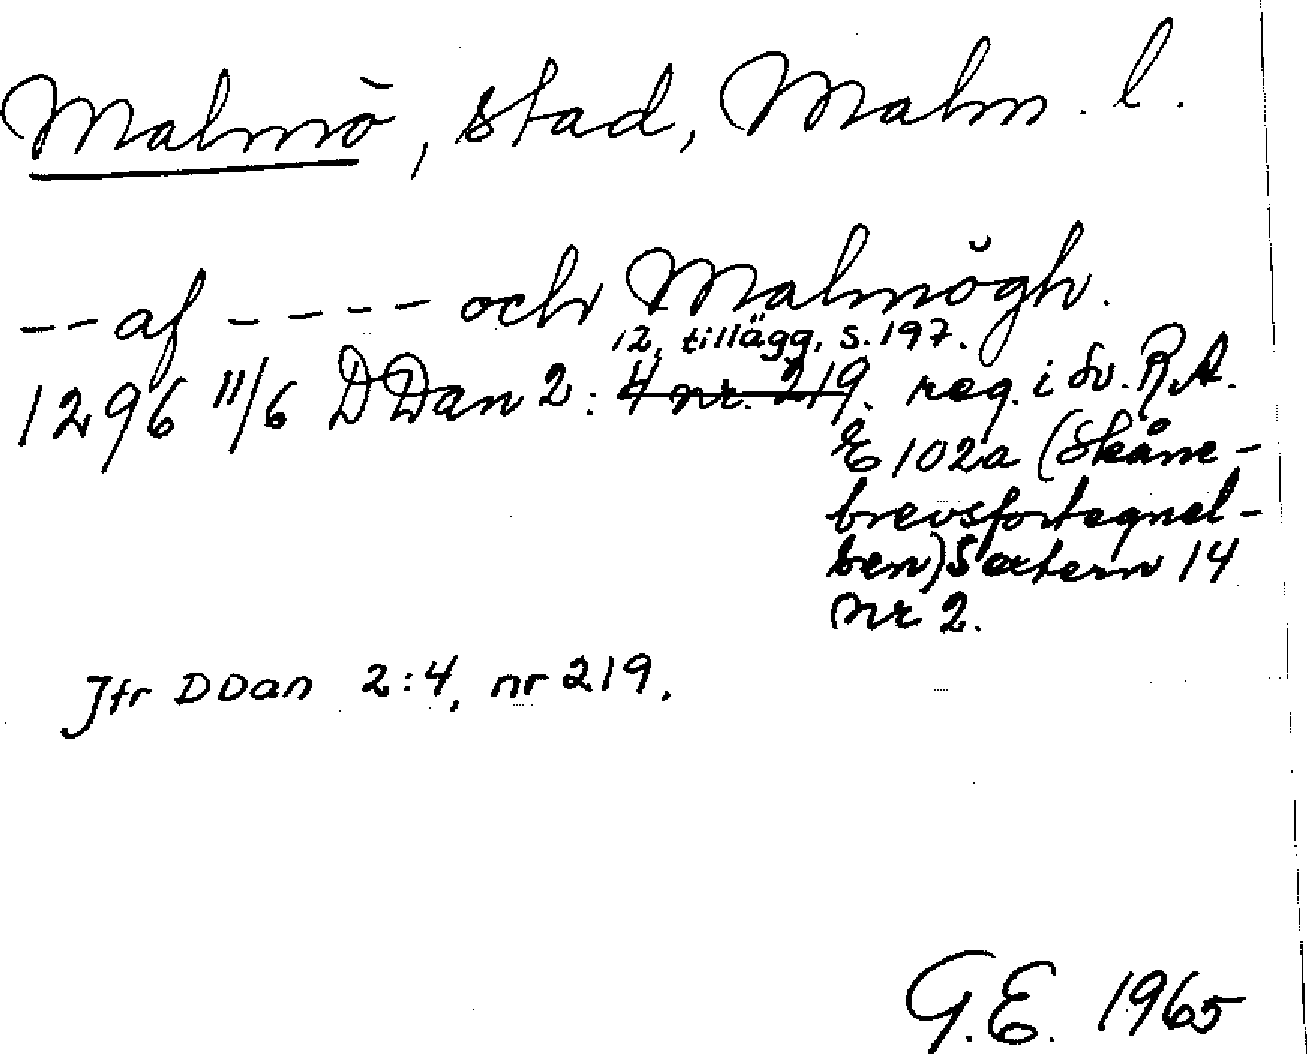 Malmö, stad, Malm. l.
-- af ---- och Malmögh.
12, tillägg, s. 197.
1296 11/6 DDan 2: 4 nr. 219. reg. i Sv. R.A.
E 102a (Skåne-
brevsfortegnel-
sen) Sextern 14
nr 2.
Jfr DDan 2:4, nr 219.
G.E. 1965